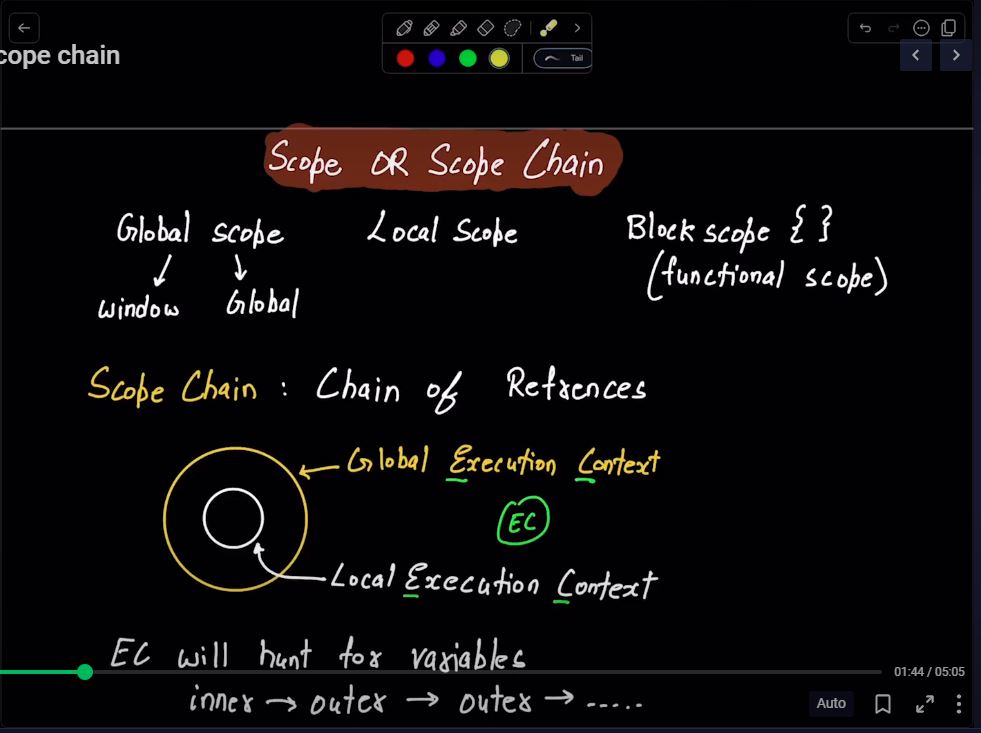 cope chain
Tail
Scope OR Scope Chain
Global scope Local Scope Block scope { }
(functional scope)
window Global
Scope Chain : Chain of Refrences
Global Execution Context
EC
Local Execution Context
EC will hunt for variables
01:44 / 05:05
inner → outer → outer → .....
Auto